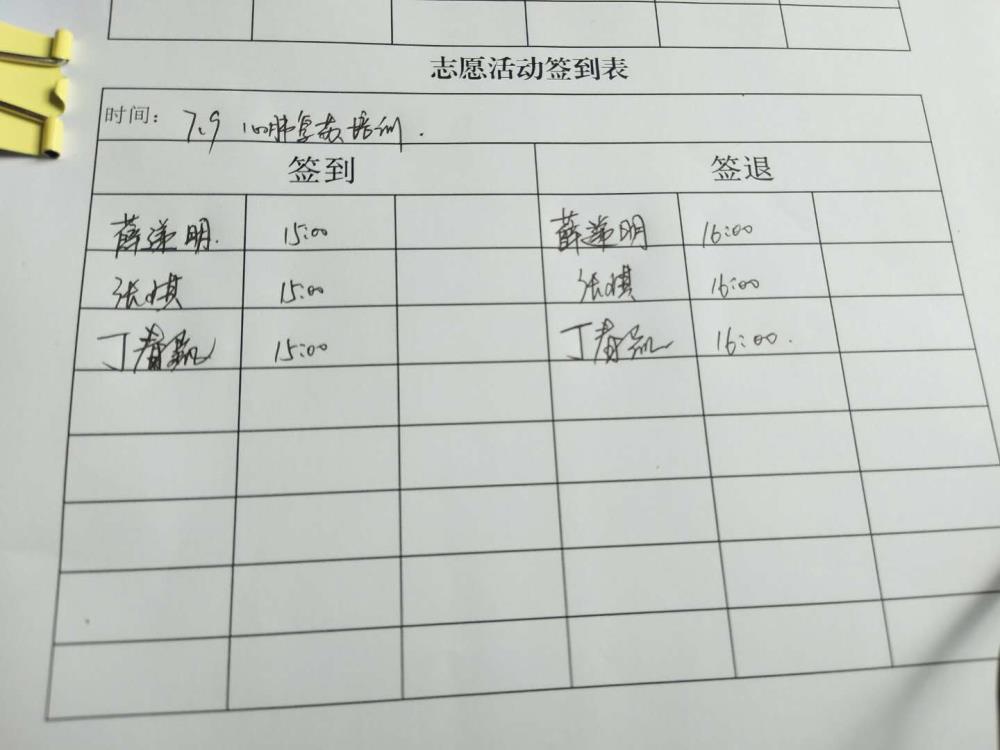 志愿活动签到表
时间: 7.9 心肺复苏培训.
签到 签退
薛莲明. 15:00 薛莲明 16:00
张棋 15:00 张棋 16:00
丁春凯 15:00 丁春凯 16:00.